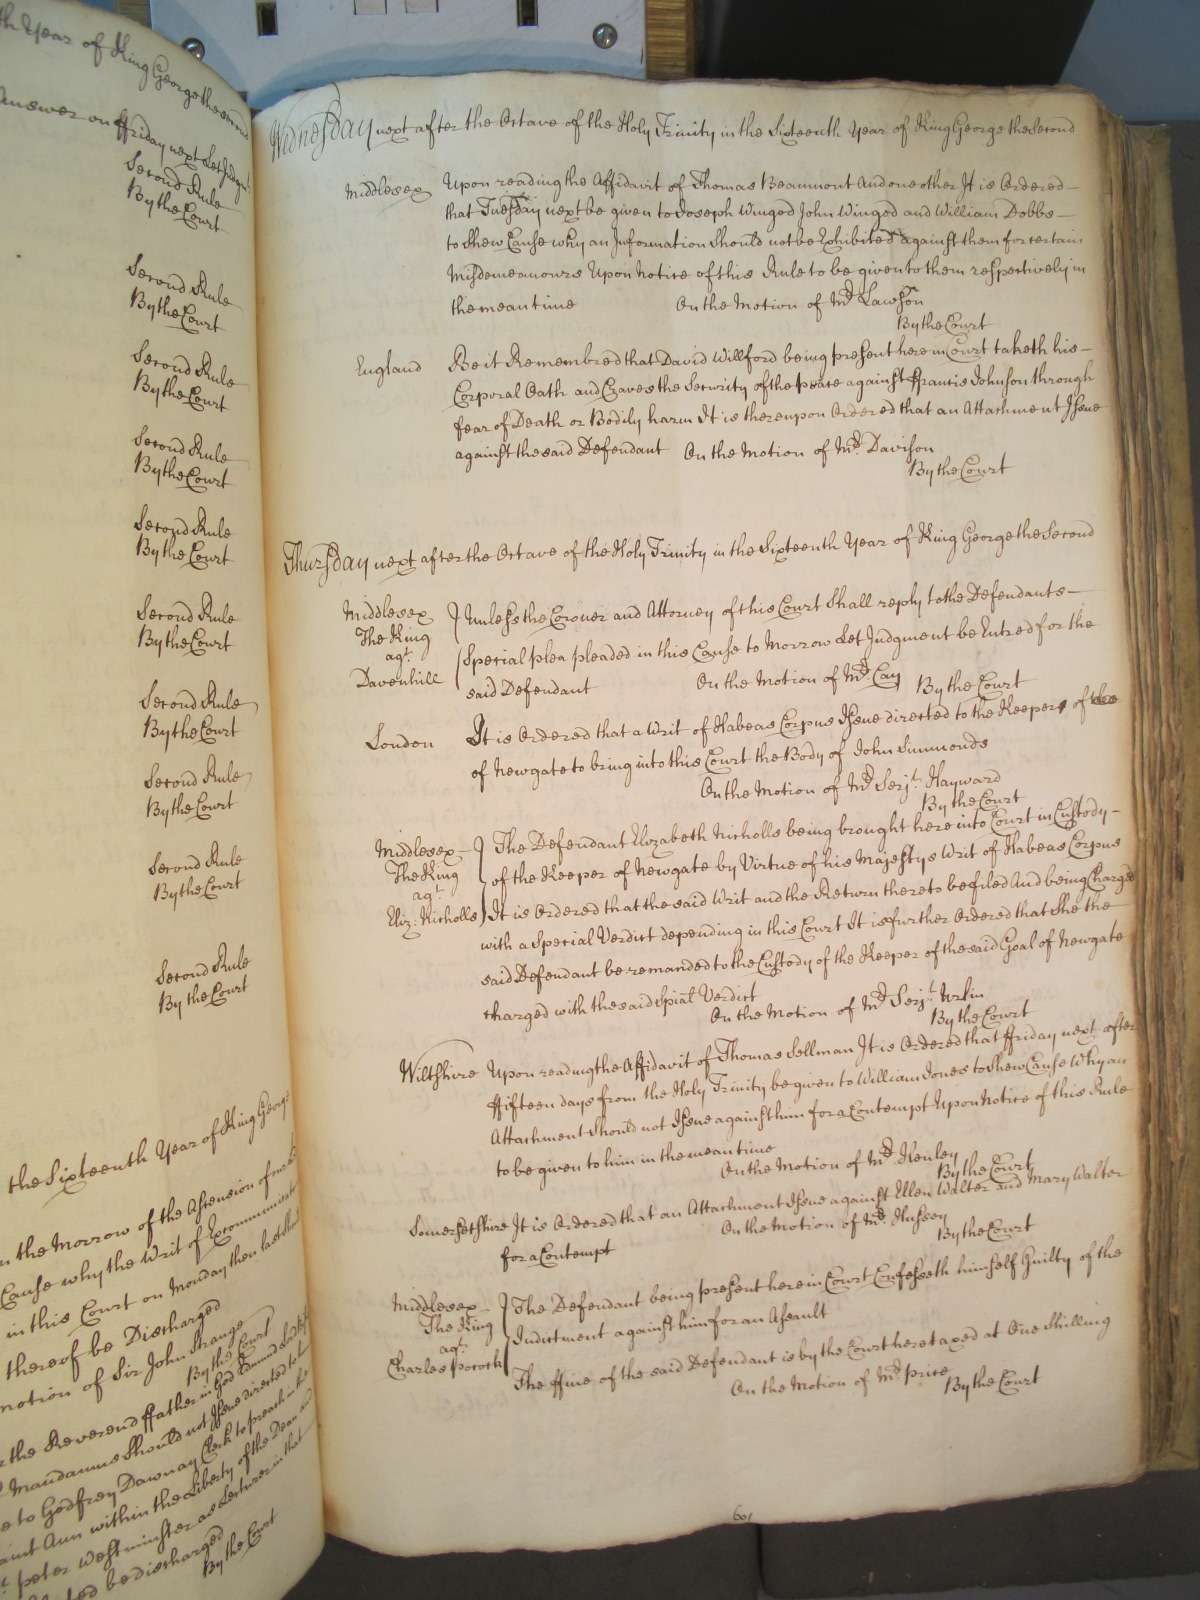 th Year of King George the second
Answer on ffriday next Let Judgmt
Second Rule
By the Court
Second Rule
By the Court
Second Rule
By the Court
Second Rule
By the Court
Second Rule
By the Court
Second Rule
By the Court
Second Rule
By the Court
Second Rule
By the Court
Second Rule
By the Court
Second Rule
By the Court
the Sixteenth Year of King George
the Morrow of the Ascension of our
Cause why the Writ of Excommunicato
in this Court on Monday then last
thereof be Discharged
motion of Sir John Strange
By the Court
the Reverend ffather in God Edmund Lord
Mandamus Should not Issue directed to
to Godfrey Dawnay Clerk to preach in the
aint Ann within the Liberty of the Dean and
peter Westminster as Lecturer in that
be discharged
By the Court
Wednesday next after the Octave of the Holy Trinity in the Sixteenth Year of King George the Second
Middlesex Upon reading the Affidavit of Thomas Beaumont And one other It is Ordered
that Tuesday next be given to Joseph Winged John Winged and William Dobbs
to Shew Cause why an Information Should not be Exhibited against them for certain
Misdemeanours Upon Notice of this Rule to be given to them respectively in
the mean time On the Motion of Mr. Lawson
By the Court
England Be it Remembred that David Willford being present here in Court taketh his
Corporal Oath and Craves the Security of the peace against ffrancis Johnson through
fear of Death or Bodily harm It is thereupon Ordered that an Attachment Issue
against the said Defendant On the Motion of Mr. Davison
By the Court
Thursday next after the Octave of the Holy Trinity in the Sixteenth Year of King George the Second
Middlesex Unless the Coroner and Attorney of this Court Shall reply to the Defendants
The King
agt. Special plea pleaded in this Cause to Morrow Let Judgment be Entred for the
Davenhill said Defendant On the Motion of Mr. Cay
By the Court
London It is Ordered that a Writ of Habeas Corpus Issue directed to the Keeper of
of Newgate to bring into this Court the Body of John Simmonds
On the Motion of Mr. Serjt. Hayward
By the Court
Middlesex The Defendant Elizabeth Nicholls being brought here into Court in Custody
The King of the Keeper of Newgate by Virtue of his Majestys Writ of Habeas Corpus
agt.
Eliz: Nicholls It is Ordered that the said Writ and the Return thereto be filed And being Charged
with a Special Verdict depending in this Court It is further Ordered that She the
said Defendant be remanded to the Custody of the Keeper of the said Goal of Newgate
charged with the said Spial Verdict
On the Motion of Mr. Serjt. Urlin
By the Court
Wiltshire Upon reading the Affidavit of Thomas Sellman It is Ordered that ffriday next after
ffifteen days from the Holy Trinity be given to William Jones to Shew Cause Why an
Attachment Should not Issue against him for a Contempt Upon Notice of this Rule
to be given to him in the mean time
On the Motion of Mr. Henley
By the Court
Somersetshire It is Ordered that an Attachment Issue against Ellen Walter and Mary Walter
for a Contempt On the Motion of Mr. Hussey
By the Court
Middlesex The Defendant being present here in Court Confesseth himself Guilty of the
The King Indictment against him for an Assault
agt.
Charles Pocock The ffine of the said Defendant is by the Court here taxed at One Shilling
On the Motion of Mr. Price
By the Court
60